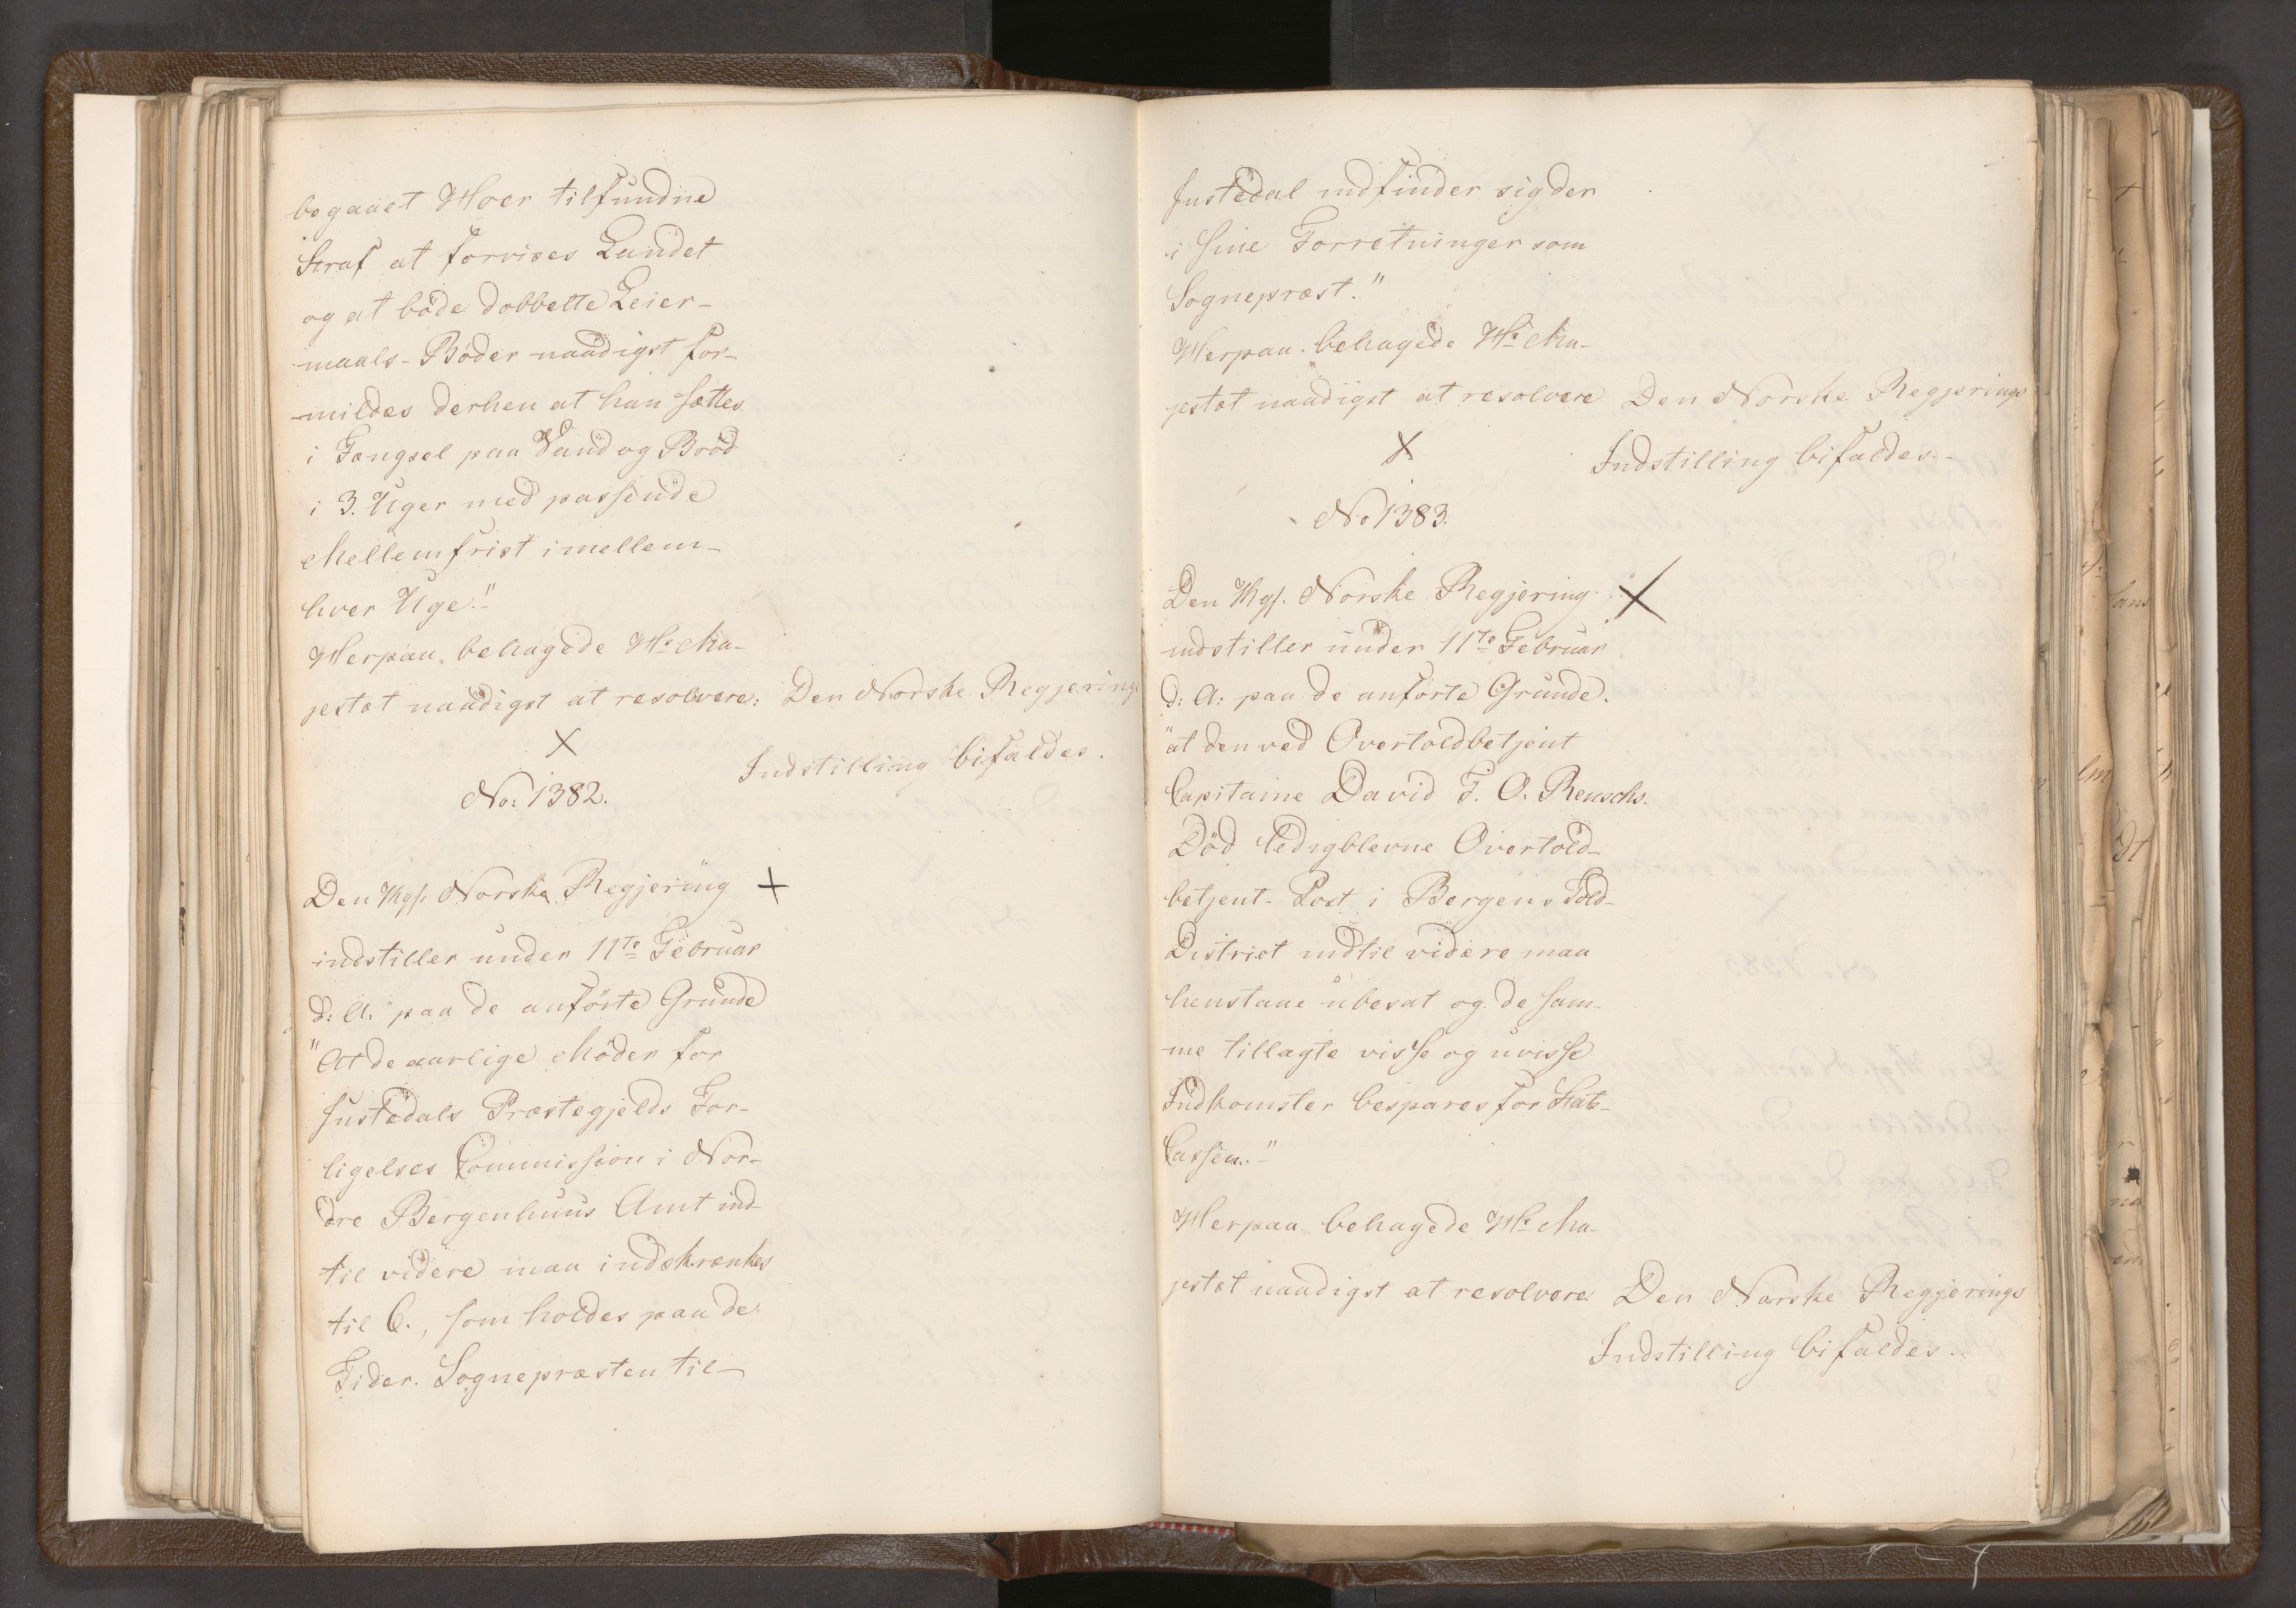 begaaet Hoer tilfundne
Straf at forvises Landet
og at böde dobbelte Leier-
maals-Böder naadigst for-
mildes derhen at han sættes
i Fængsel paa Vand og Bröd
i 3. Uger med passende
Mellemfrist imellem
hver Uge."
Herpaa behagede Hs Ma-
jestæt naadigst at resolvere: Den Norske Regjerings
Indstilling bifaldes.
X
No: 1382.
Den Kgs. Norske Regjering X
indstiller under 11te Februar
d: A: paa de anförte Grunde
"At de aarlige Möder for
Justedals Præstegjelds For-
ligelses Commission i Nor-
dre Bergenhuus Amt ind
til videre maa indskrænkes
til 6., som holdes paa de
Tider. Sognepræsten til
Justedal indfinder sig der
i sine Forretninger som
Sognepræst."
Herpaa behagede Hs Ma-
jestæt naadigst at resolvere Den Norske Regjerings
Indstilling bifaldes.
X
No 1383.
Den Kgs. Norske Regjering X
indstiller under 11te Februar
d: A: paa de anförte Grunde.
"at den ved Overtoldbetjent
Capitaine David F. O. Reuschs.
Död ledigblevne Overtold-
betjent-Post i Bergens Told-
District indtil videre maa
henstaae ubesat og de sam-
me tillagte visse og uvisse
Indkomster bespares for Stats-
Cassen."
Herpaa behagede Hs Ma-
jestæt naadigst at resolvere Den Norske Regjerings
Indstilling bifaldes.